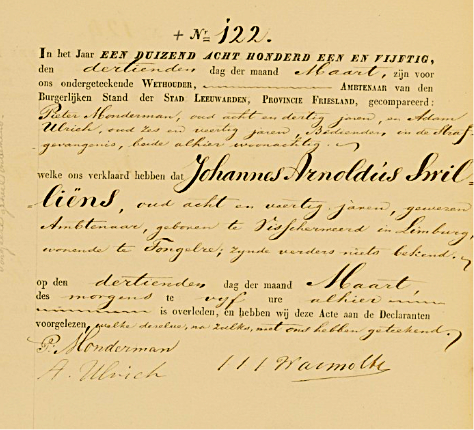 + Nr. 122.
In het Jaar EEN DUIZEND ACHT HONDERD EEN EN VIJFTIG,
den dertienden dag der maand Maart, zijn voor
ons ondergeteekende Wethouder, Ambtenaar van den
Burgerlijken Stand der Stad Leeuwarden, Provincie Friesland, gecompareerd:
Pieter Monderman, oud acht en dertig jaren, en Adam
Ulrich, oud zes en veertig jaren, Bedienden in de Straf-
gevangenis, beide alhier woonachtig.
welke ons verklaard hebben dat Johannes Arnoldús Swil
liëns, oud acht en veertig jaren, gewezen
Ambtenaar, geboren te Visscherweerd in Limburg,
wonende te Tongelre, zynde verders niets bekend.
op den dertienden dag der maand Maart,
des morgens te vyf ure alhier
is overleden, en hebben wij deze Acte aan de Declaranten
voorgelezen, welke dezelve, na zulks, met ons hebben geteekend.
P. Monderman
A. Ulrich